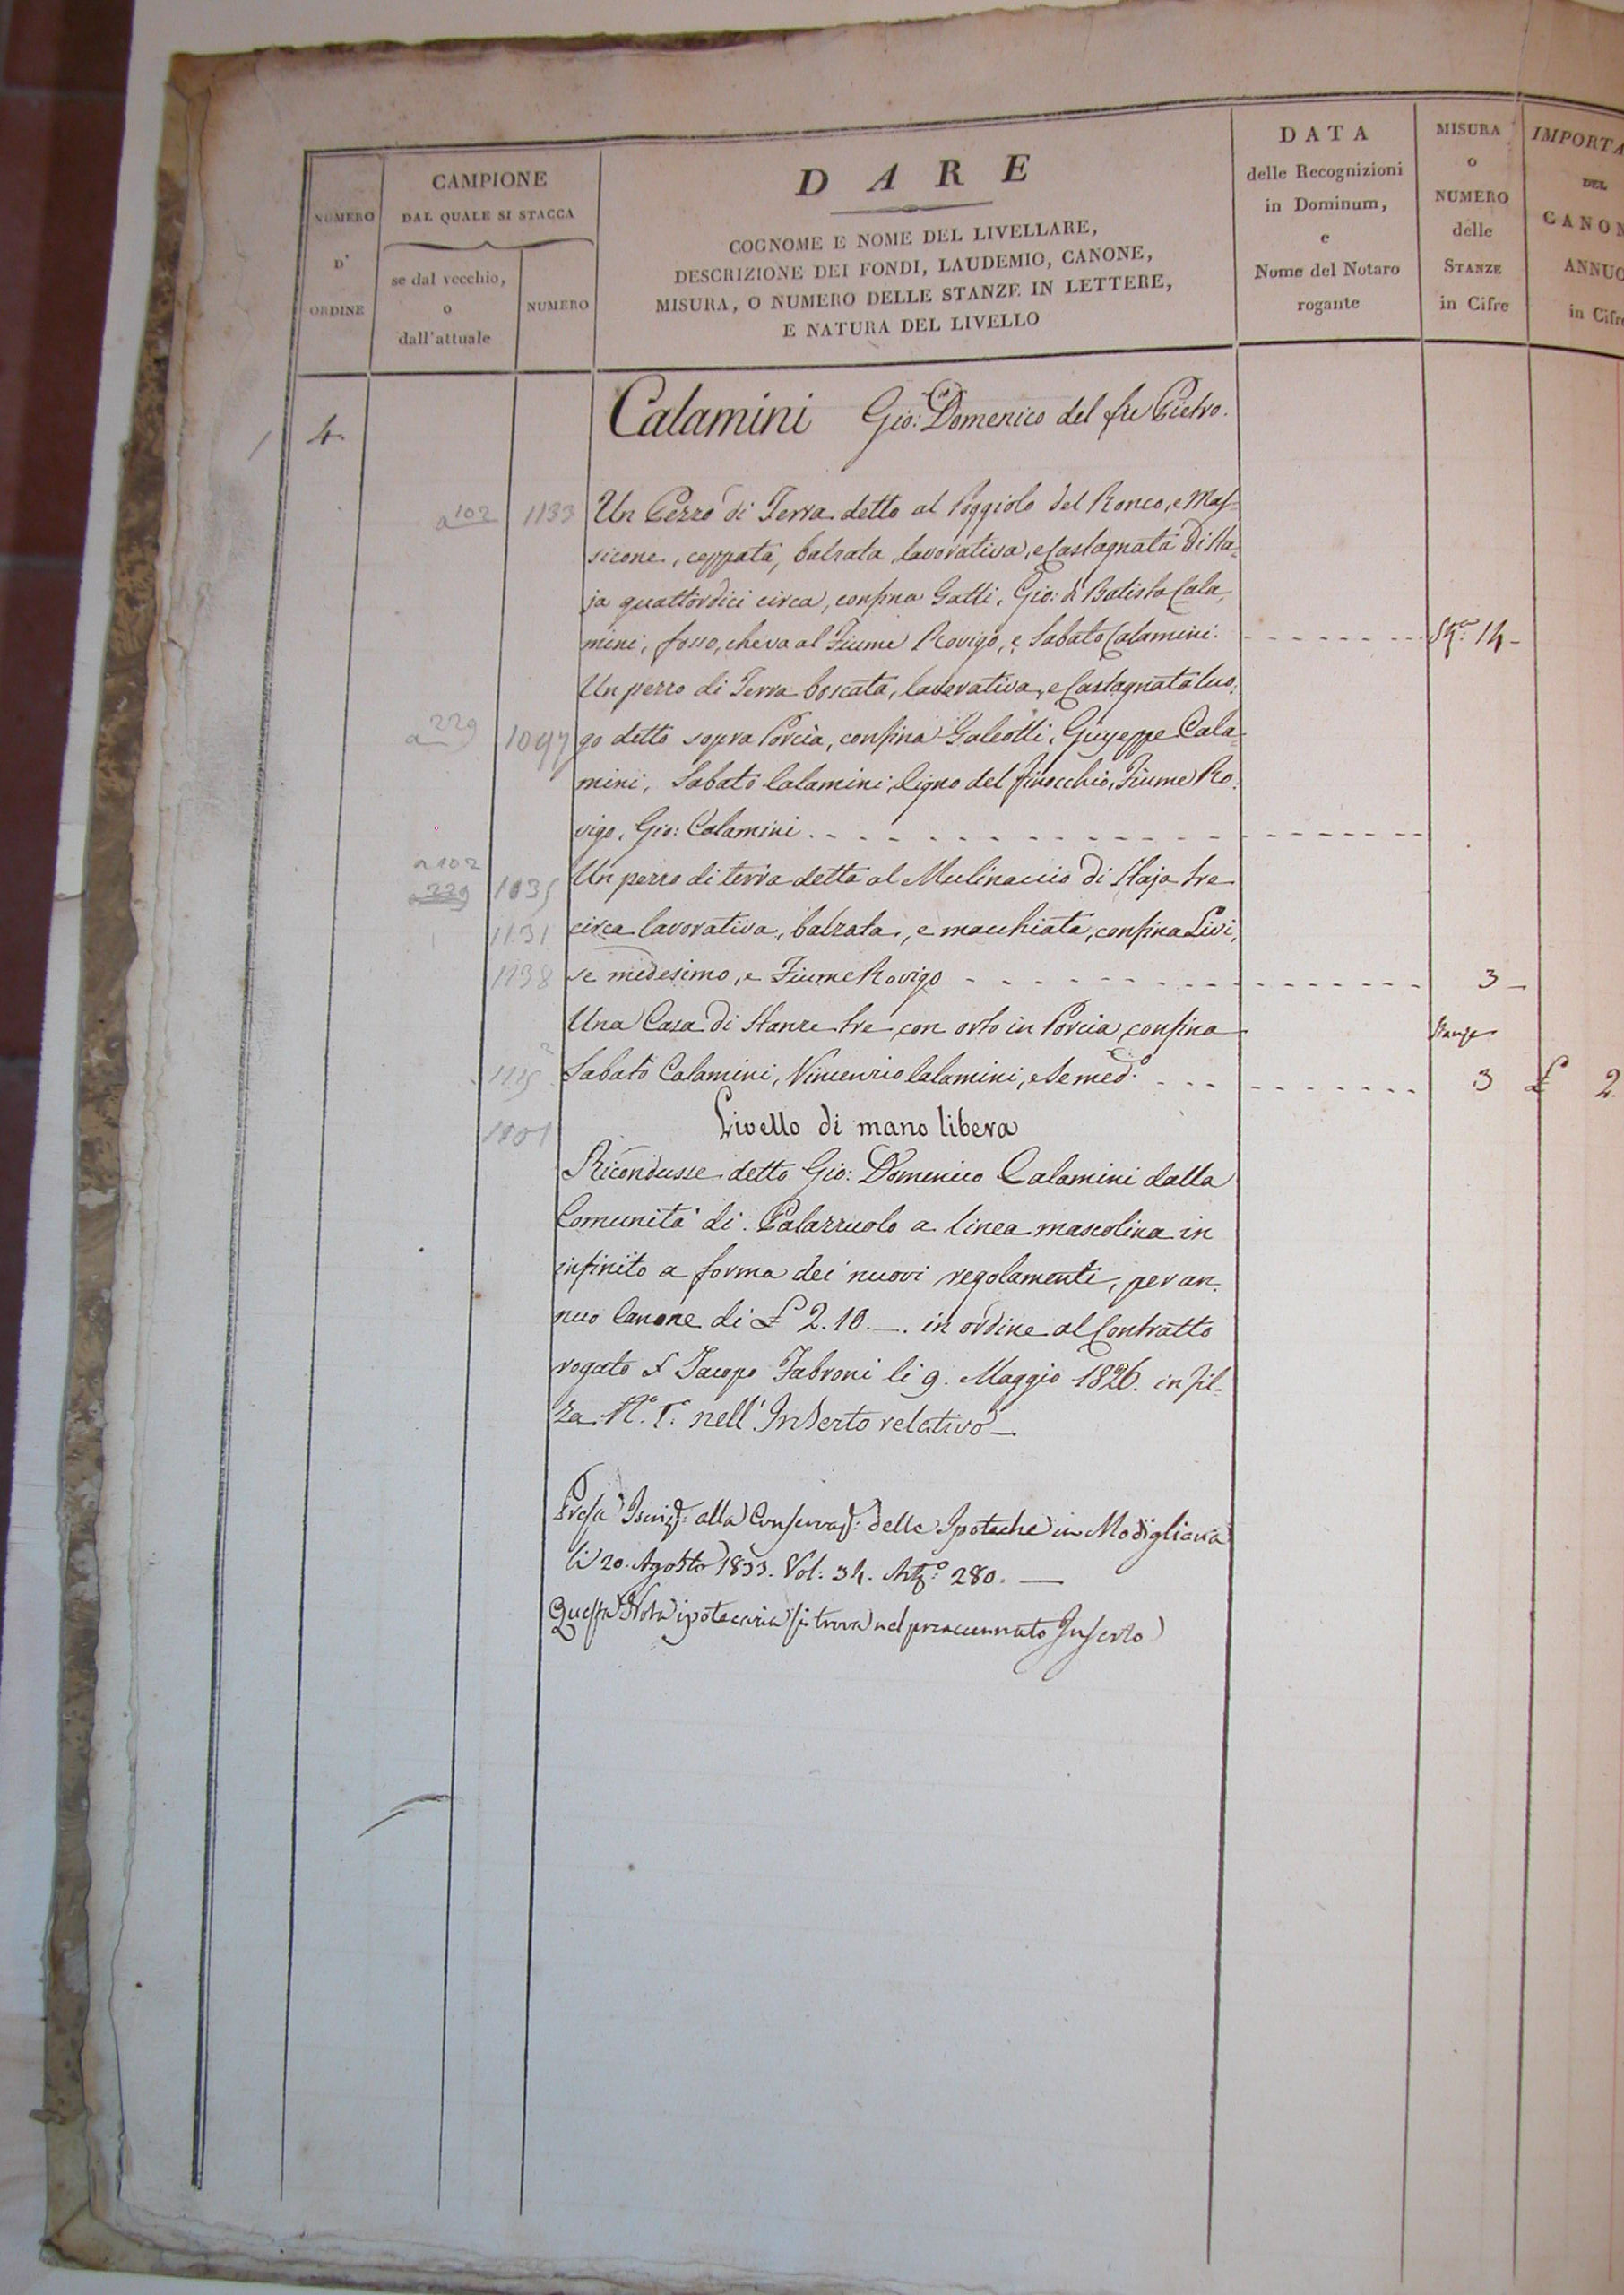 NUMERO
D'
ORDINE
CAMPIONE
DAL QUALE SI STACCA
se dal vecchio,
o
dall'attuale
NUMERO
DARE
COGNOME E NOME DEL LIVELLARE,
DESCRIZIONE DEI FONDI, LAUDEMIO, CANONE,
MISURA, O NUMERO DELLE STANZE IN LETTERE,
E NATURA DEL LIVELLO
DATA
delle Recognizioni
in Dominum,
e
Nome del Notaro
rogante
MISURA
o
NUMERO
delle
STANZE
in Cifre
IMPORTA
DEL
CANON
ANNUO
in Cifre
4.
Calamini Gio: Domenico del fu Pietro.
a 102 1133 Un Pezzo di Terra detto al Poggiolo del Ronco, e Mas-
sicone, ceppata, balzata, lavorativa, e Castagnata di Sta-
ja quattordici circa, confina Gatti, Gio: di Batista Cala-
mini, fosso, che va al Fiume Rovigo, e Sabato Calamini. 14 -
Un pezzo di Terra boscata, lavorativa, e Castagnata luo-
a 229 1097 go detto sopra Porcia, confina Galeotti, Giuseppe Cala-
mini, Sabato Calamini, Cigno del finocchio, Fiume Ro-
vigo, Gio: Calamini
a 102
a 229 1135 Un pezzo di terra detta al Mulinaccio di Staja tre
1131 circa lavorativa, balzata, e macchiata, confina Livi,
1138 se medesimo, e Fiume Rovigo 3 -
Una Casa di Stanze tre con orto in Porcia, confina Stanze
Sabato Calamini, Vincenzio Calamini, e Se med.o 3 £ 2.
Livello di mano libera
Ricondusse detto Gio: Domenico Calamini dalla
Comunità di Palazzuolo a linea mascolina in
infinito a forma dei nuovi regolamenti, per an-
nuo Canone di £ 2.10.-. in ordine al Contratto
rogato Jacopo Fabroni li 9. Maggio 1826. in fil-
za N.o nell'Inserto relativo -
Presa Iscriz: alla Conservaz: delle Ipoteche in Modigliana
li 20. Agosto 1833. Vol: 34. 280. -
Questa Nota ipotecaria si trova nel preaccennato Inserto